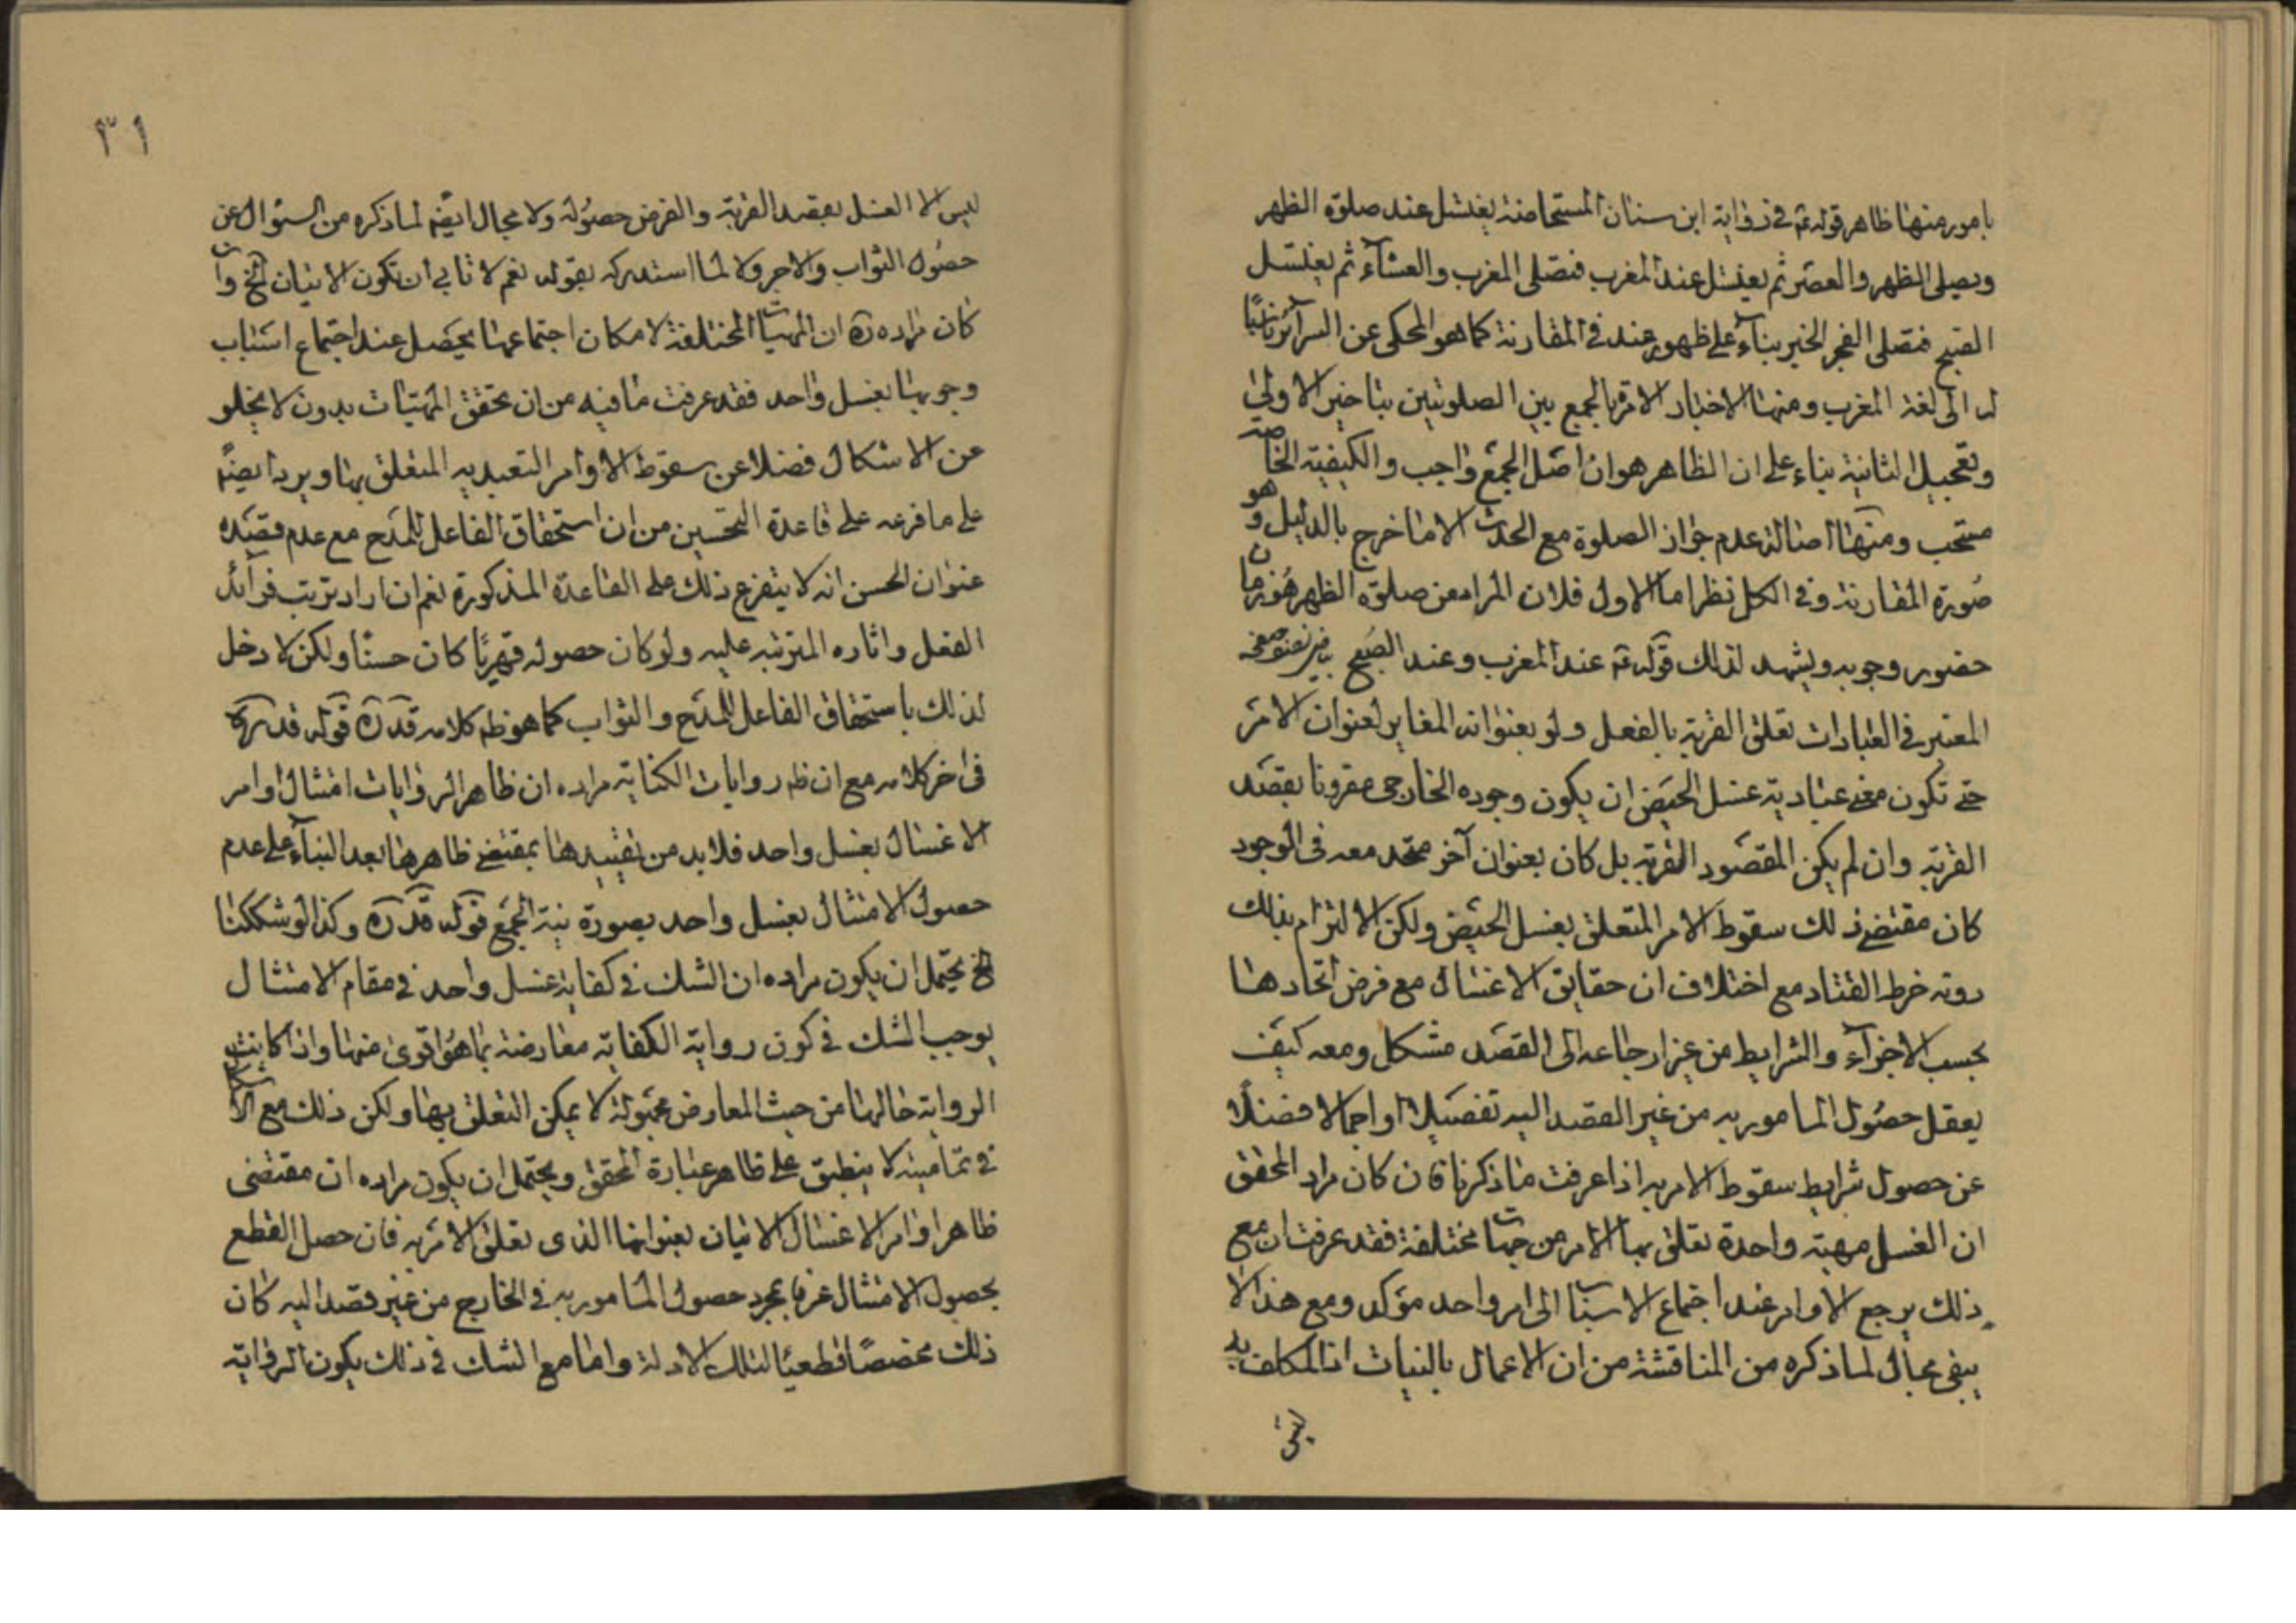 بامور منها ظاهر قوله ع في رواية ابن سنان المستحاضة يغتسل عند صلوة الظهر
ويصلى الظهر والعصر ثم يغتسل عند المغرب فتصلى المغرب والعشآء ثم يغتسل
الصبح فتصلى الفجر الخبر بنآء على ظهور عند في المقارنة كما هو المحكى عن السرائر
له الى لغة المغرب ومنها الاخبار الامرة بالجمع بين الصلوتين بتاخير الاولى
وتعجيل الثانية بناء على ان الظاهر هو ان اصل الجمع واجب والكيفية الخاصة
مستحب ومنها اصالة عدم جواز الصلوة مع الحدث الا ما خرج بالدليل وهو
صورة المقارنة وفي الكل نظر اما الاول فلان المراد من صلوة الظهر هو زمان
حضور وجوبه ويشهد لذلك قوله ع عند المغرب وعند الصبح
المعتبر في العبادات تعلق القربة بالفعل ولو بعنوانه المغاير لعنوان الامر
حتى تكون معنى عبادية غسل الحيض ان يكون وجوده الخارجى مقرونا بقصد
القربة وان لم يكن المقصود القربة بل كان بعنوان آخر متحد معه في الوجود
كان مقتضى ذلك سقوط الامر المتعلق بغسل الحيض ولكن الالتزام بذلك
دونه خرط القتاد مع اختلاف ان حقايق الاغسال مع فرض اتحادها
بحسب الاجزآء والشرايط من غير ارجاعه الى القصد مشكل ومعه كيف
يعقل حصول المامور به من غير القصد اليه تفصيلا او اجمالا فضلا
عن حصول شرايط سقوط الامر به اذا عرفت ما ذكرنا فان كان مراد المحقق
ان الغسل مهية واحدة تعلق بها الامر من جهات مختلفة فقد عرفت ان مع
ذلك يرجع الاوامر عند اجتماع الاسباب الى امر واحد مؤكد ومع هذا لا
يبقى مجال لما ذكره من المناقشة من ان الاعمال بالنيات اذ المكلف به
ليس
٣١
ليس الا الغسل بقصد القربة والفرض حصوله ولا مجال ايضا لما ذكره من السئوال عن
حصول الثواب والاجر ولا لما استدركه بقوله نعم لا نابى ان تكون الاتيان الخ وان
كان مراده ره ان المهيات المختلفة لامكان اجتماعها يحصل عند اجتماع اسباب
وجوبها بغسل واحد فقد عرفت ما فيه من ان تحقق المهيات بدون لا يخلو
عن الاشكال فضلا عن سقوط الاوامر التعبديه المتعلق بها ويرد ايضا
على ما فرعه على قاعدة التحسين من ان استحقاق الفاعل للمدح مع عدم قصده
عنوان الحسن انه لا يتفرع ذلك على القاعدة المذكورة نعم ان اراد ترتب فوآئد
الفعل واثاره المترتبه عليه ولو كان حصوله قهريا كان حسنا ولكن لا دخل
لذلك باستحقاق الفاعل للمدح والثواب كما هو ظ كلامه قده قوله قدس سره
فى اخر كلامه مع ان ظ روايات الكفاية مراده ان ظاهر الروايات امتثال اوامر
الاغسال بغسل واحد فلابد من تقييدها بمقتضى ظاهرها بعد البنآء على عدم
حصول الامتثال بغسل واحد بصورة نية الجمع قوله قده وكذا لو شككنا
الخ يحتمل ان يكون مراده ان الشك في كفاية غسل واحد في مقام الامتثال
يوجب الشك في كون رواية الكفاية معارضة بما هو اقوى منها واذا كانت
الرواية حالها من حيث المعارض مجهولة لا يمكن التعلق بها ولكن ذلك مع
في تماميته لا ينطبق على ظاهر عبارة المحقق ويحتمل ان يكون مراده ان مقتضى
ظاهر اوامر الاغسال الاتيان بعنوانها الذى تعلق الامر به فان حصل القطع
بحصول الامتثال عرفا بمجرد حصول المامور به في الخارج من غير قصد اليه كان
ذلك مخصصا قطعيا لتلك الادلة واما مع الشك في ذلك يكون الرواية